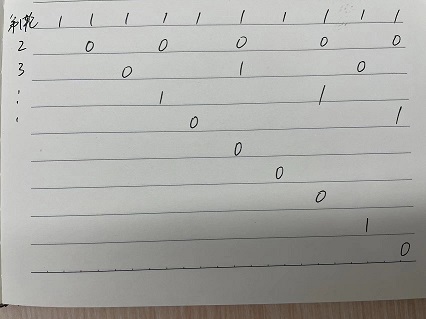 第1轮 1 1 1 1 1 1 1 1 1 1
2 0 0 0 0 0
3 0 1 0
⋮ 1 1
0 1
0
0
0
1
0